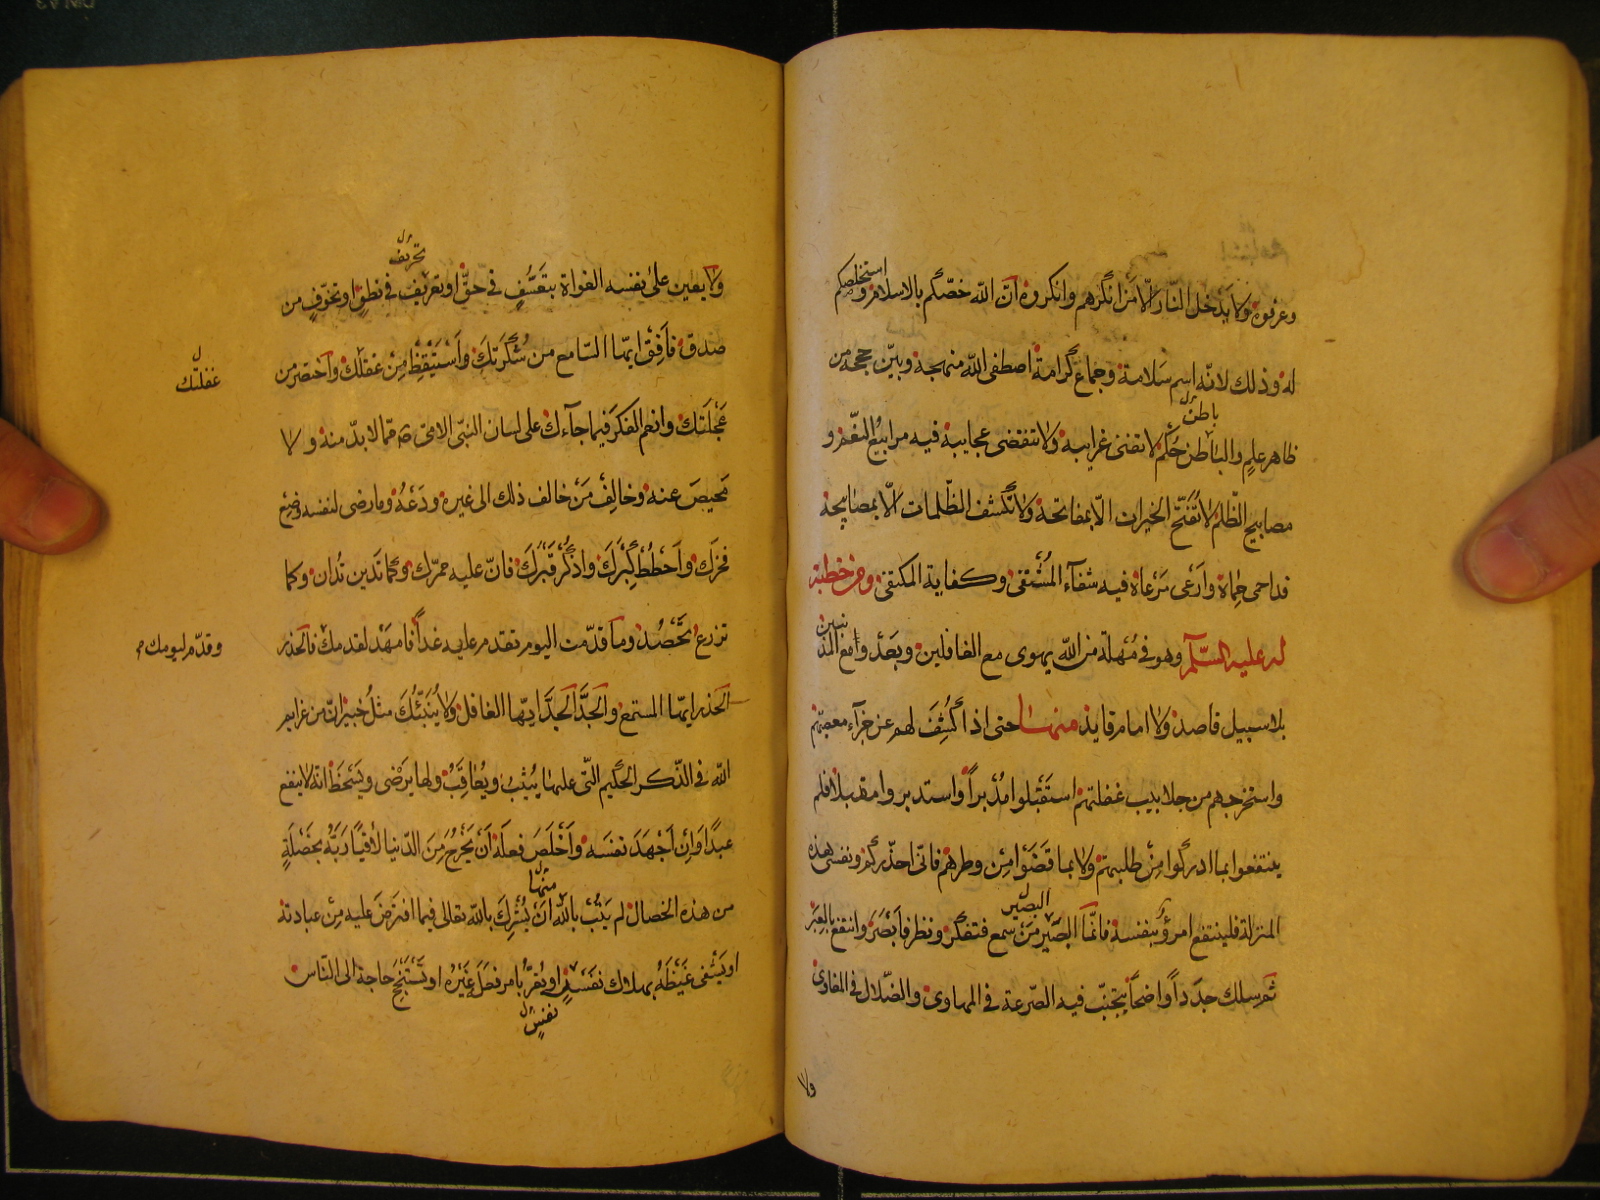 وعرفوه ولا يدخل النّار الّا من انكرهم وانكروه انّ الله خصّكم بالاسلام واستخلصكم
له وذلك لانّه اسم سَلامة وجماع كرامة اصطفى الله منهجه وبيّن حججه من
باطن
ظاهر علمٍ والباطن حُكم لا تفنى غرايبه ولا تنقضى عجايبه فيه مرابيع النّعم و
مصابيح الظّلم لا تُفتح الخيرات الّا بمفاتحه ولا تكشف الظّلمات الّا بمصابيحه
قد احمى حِماه وارعى مَرعاه فيه شفآء المُشتفى وكفاية المكتفى ومن خطبة
له عليه السّلام وهو فى مُهلة من الله يهوى مع الغافلين ويغدو مع المذنبين
بلا سبيل قاصد ولا امام قايد منها حتى اذا كُشِفَ لهم عن جزآء معصيتهم
واستخرجهم من جلابيب غفلتهم استَقبلوا مُدبراً واستدبروا مقبلا فلم
ينتفعوا بما ادركوا مِن طلبتهم ولا بما قَضَوا مِن وطرهم فانّى احذّركم ونفسى هذه
البصير
المنزلة فلينتفع امرؤ بنفسه فانّما البَصير مَن سمع فتفكّر ونظر فابصَرَ وانتفع بالعِبَر
ثم سلك جدَداً واضحاً يتجنّب فيه الصّرعة فى المهاوى والضّلال فى المغاوى
ولا
تحريف
ولا يعين على نفسه الغواة بتعَسُّفٍ فى حقّ او تعريف فى نطق او تخوّفٍ من
صدق فاَفِق ايّها السّامع من سُكرَتِكَ واَستَيقِظ مِن غفلتك واختصر من
غفلتك
عَجَلَتك وانعم الفكر فيما جآءك على لسان النبىّ الامّى ص ممّا لا بدّ منه ولا
مَحيصَ عنه وخالِف مَن خالف ذلك الى غيره ودَعهُ وما رضى لنفسه وضع
فخرَك واحطُط كِبرَكَ واذكُر قَبرَكَ فانّ عليه ممرّك وكما تَدين تُدان وكما
تزرع تحصُد وما قدّمت اليوم تقدم عليه غداً فامهَد لقدمك فالحذر
وقدّم ليومك
الحَذر ايّها المستمع والجَدَّ الجَدَّ ايّها الغافل ولا يُنَبِّئُكَ مثلُ خبير انّ من عزايم
الله فى الذّكر الحكيم الّتى عليها يُثِيب ويُعاقِبُ ولها يرَضى ويَسخَط انّه لا ينفع
عبدًا وَاِن اَجهَدَ نفسَه واَخلَصَ فِعلَه اَن يَخرُجَ مِنَ الدّنيا لاقِياً رَبَّهُ بخَصلَةٍ
منها
من هذه الخصال لم يتُب اَن يُشرِك بالله تعالى فيما افترَضَ عليه مِن عبادته
او يَشفى غَيظَهُ بهلاك نفَسه او يُقِرَّ بامر فعَلَهُ غَيرُه او يَستَنجِحَ حاجة الى النّاس
نفسٍ